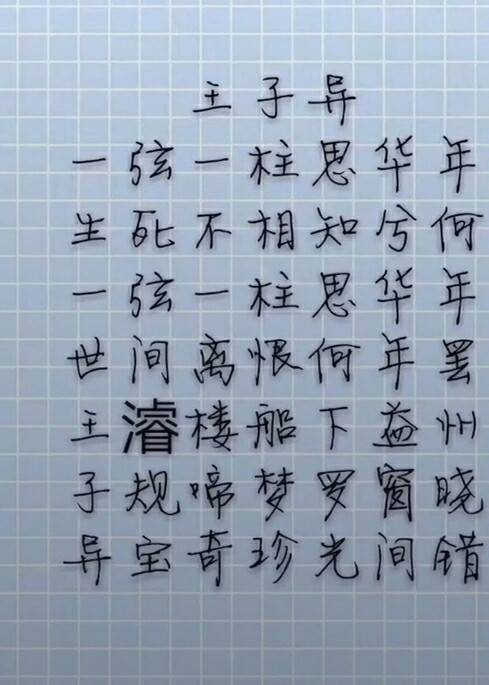 王子异
一弦一柱思华年
生死不相知兮何
一弦一柱思华年
世间离恨何年罢
王濬楼船下益州
子规啼梦罗窗晓
异宝奇珍光间错